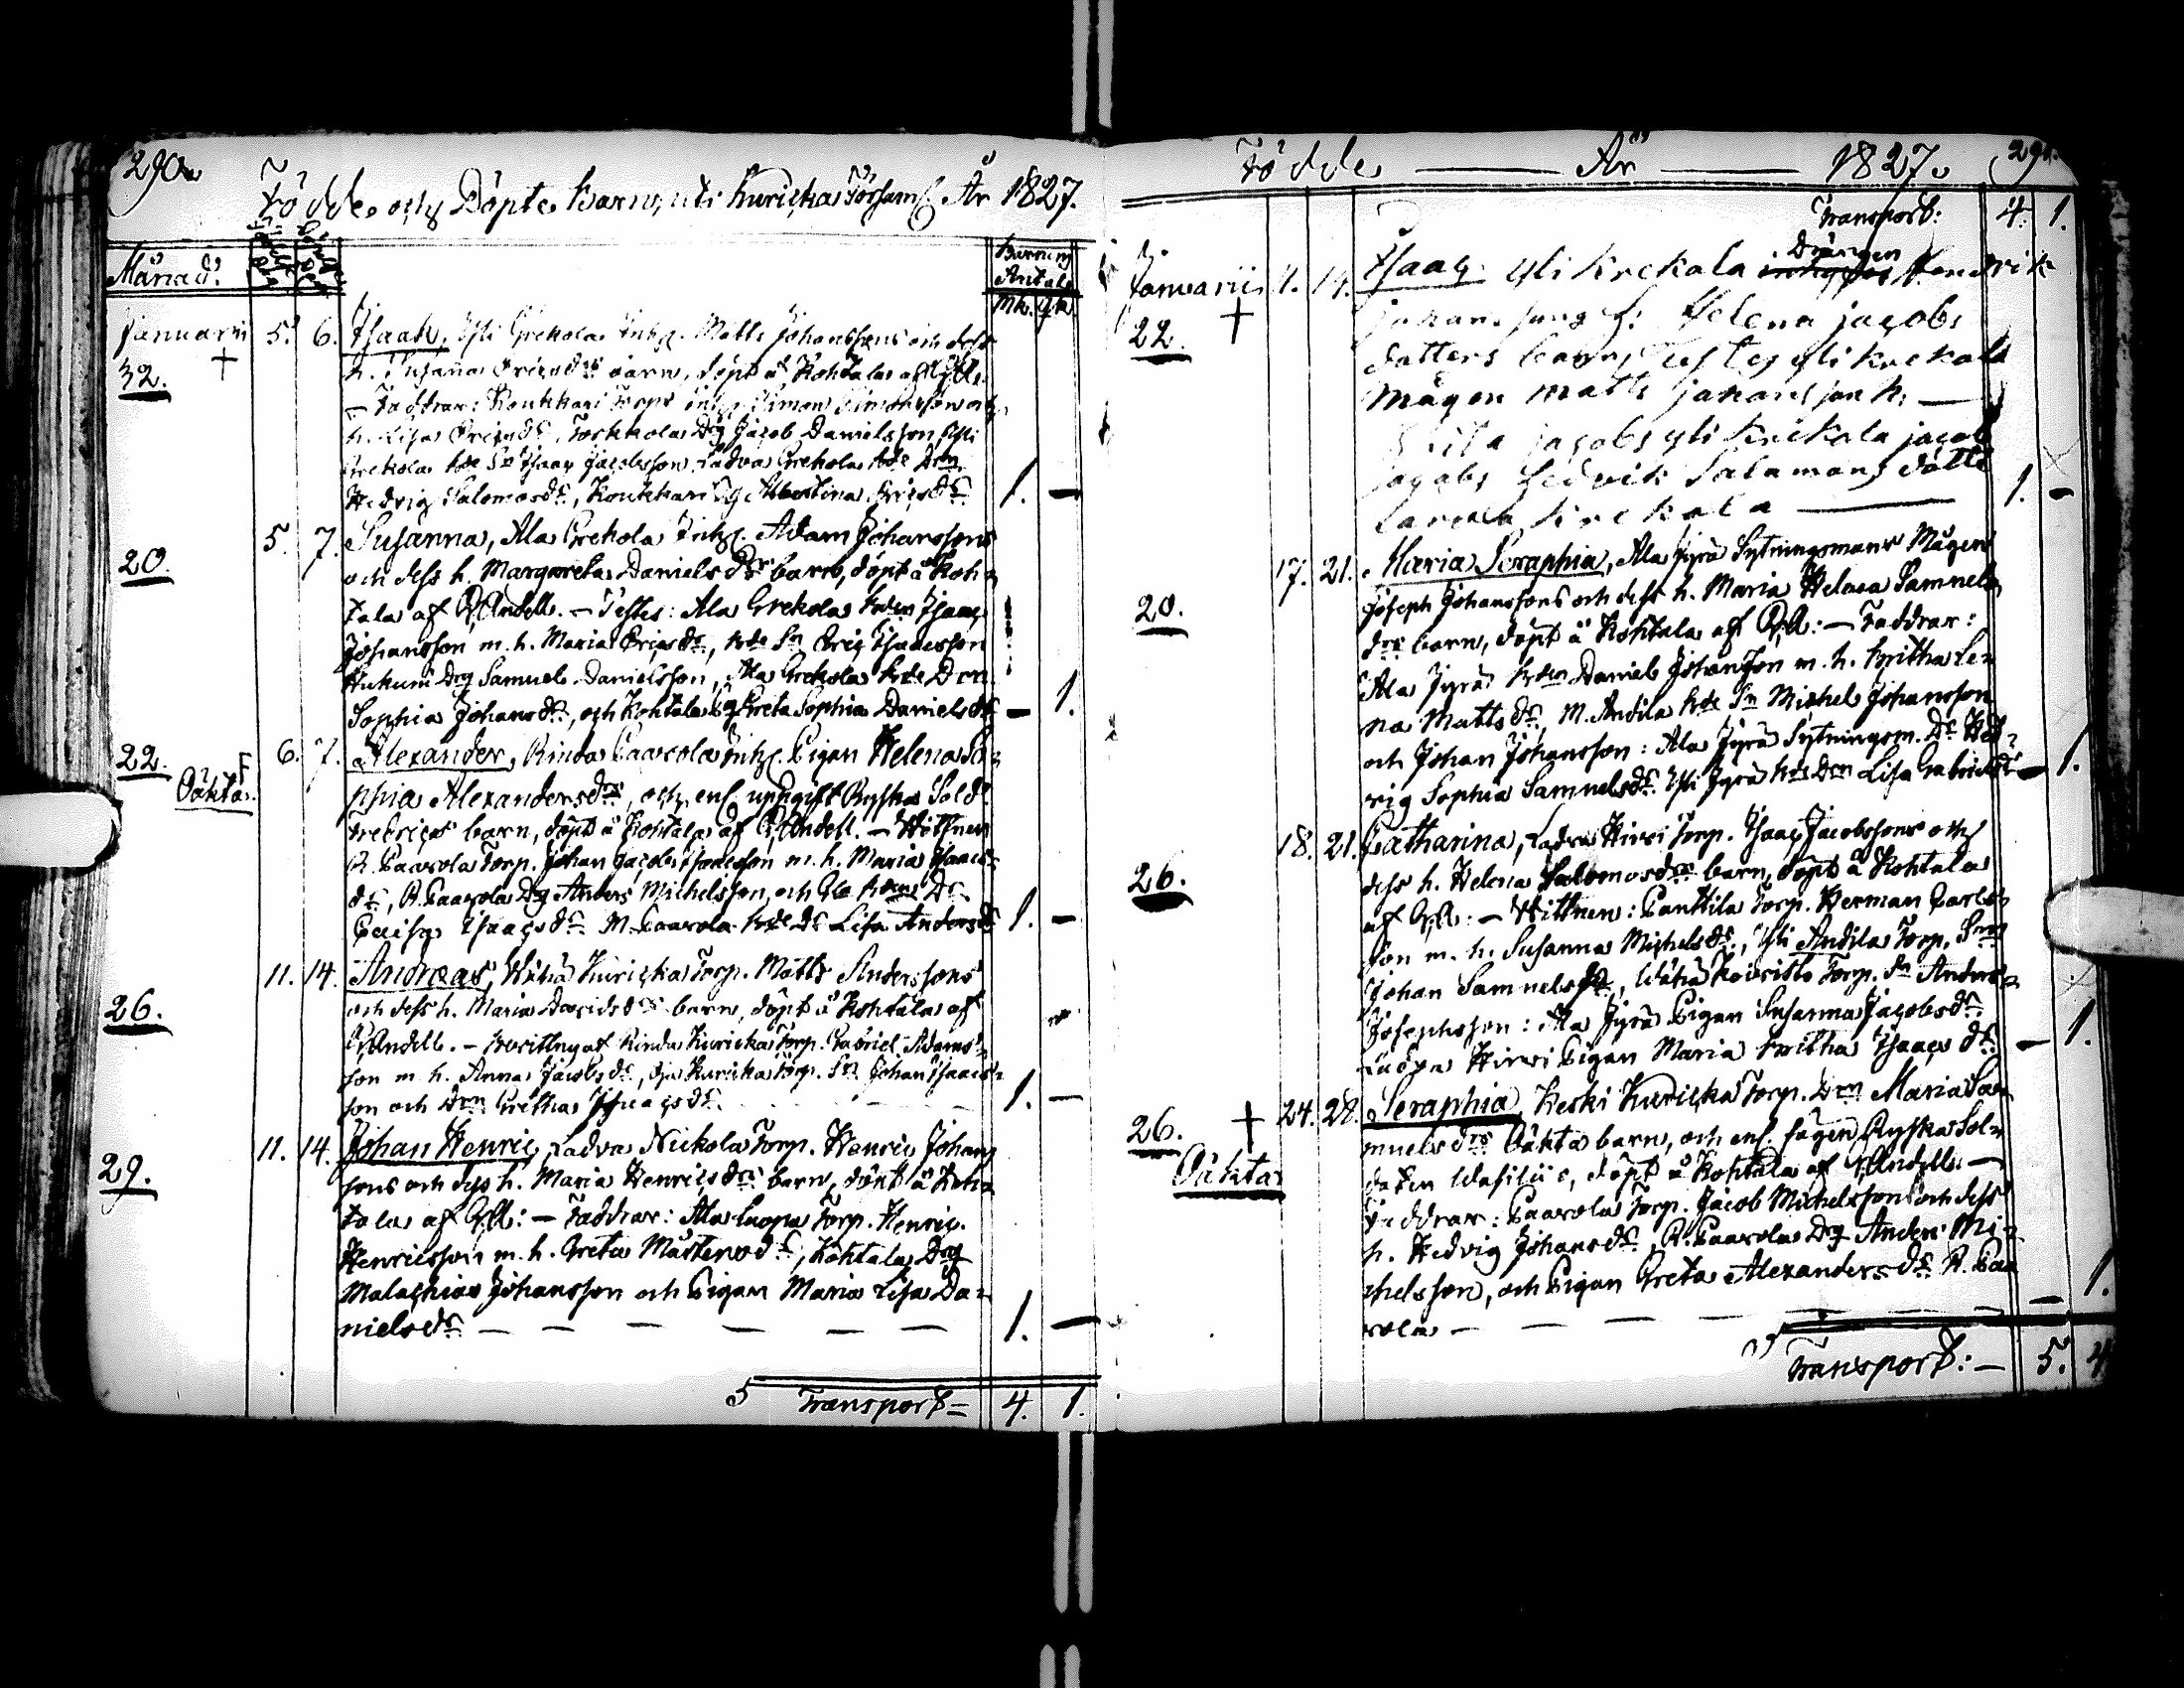 290.
Födde och Döpte Barn, uti Kuricka Församl. År 1827.
Månad.
Födelse dag
Döpelse dag
Barnens Antal
Mk. Qk.
Januarii 5. 6. Isaak, Yli Grekola Inhs. Matts Johanssons och dess
32. † h. Susanna Ericsdrs barn, döpt å Kohtala af
— Faddrar: Koukkari Torp. inhs. Simon Simonsson och
h. Lisa Ericsdr, Torkkola Dg Jacob Danielsson, Yli
Grekola bde Sn Isaac Jacobsson, Ladva Grekola bde Drn
Hedvig Salomosdr, Koukkari Pig Albertina Ericsdr 1. —
5. 7. Susanna, Ala Grekola Inhs. Adam Johanssons
20. och dess h. Margareta Daniels Drs barn, döpt å Koh=
tala af C. Andell. — Testes: Ala Grekola bden Isaac
Johansson m. h. Maria Ericsdr, bde Sn Eric Isaacsson
Hukum Drg Samuel Danielsson, Ala Grekola bde Drn
Sophia Johansdr, och Kohtala Pg Greta Sophia Danielsdr — 1.
22. 6. 7. Alexander, Rinda Paavola Inhs. Pigan Helena So=
Oäkta. phia Alexandersdrs, och enl. uppgift Ryska Sold.
barn, döpt å Kohtala af C. Andell. — Wittnen
R. Paavola Torp. Johan Jacob Isaacsson m. h. Maria Isaacs=
dr, R. Paavola Dg Anders Michelsson, och
Caisa Isaacsdr M. Paavola bde Dr Lisa Andersdr 1. —
11. 14. Andreas, Wähä Kuricka Torp. Matts Anderssons
26. och dess h. Maria Davidsdrs barn, döpt å Kohtala af
C. Andell. — bevittnat af Rinda Kuricka Torp. Gabriel Adams=
son m. h. Anna Jacobsdr, Oja Kuricka Torp. Sn Johan Isaacs=
son och Drn Gretha Isaacsdr 1. —
11. 14. Johan Henric, Ladva Nickola Torp. Henric Johans
29. sons och dess h. Maria Henricsdrs barn, döpt å Koh=
tala af C. A: — Faddrar: Ala Luopa Torp. Henric
Henricsson m. h. Greta Mårtensdr, Kohtala Drg
Malachias Johansson och Pigan Maria Lisa Da=
nielsdr — — — — — — 1. —
5 Transport = 4. 1.
Födde — År — 1827. 291.
Transport: 4. 1.
Drängen
Januarii 14. Isaac yli krekola Hendrik
22. † johans sons h: Helena jacobs
dotters barn, Testes yli krekola
mågen matts johansson h: —
jacobs yli krekola jacob
jacobs Hedvik Salamons dotte
krekola — 1. —
17. 21. Maria Seraphia, Ala Jyrä Sytningsmans Mågens
20. Joseph Johanssons och dess h. Maria Helena Samuels
drs barn, döpt å Kohtala af C. A: — Faddrar:
Ala Jyrä bden Daniel Johansson m. h. Britha Le=
na Mattsdr, M. Andila bde Sn Michel Johansson
och Johan Johansson: Ala Jyrä Sytningsm. Dr Hed=
vig Sophia Samuelsdr. Yli Jyrä bde Drn Lisa Gabrielsdr — 1.
18. 21. Catharina, Ladva Hirvi Torp. Isaac Jacobssons och
26. dess h. Helena Salomosdrs barn, döpt å Kohtala
af C. A: — Wittnen: Panttila Torp. Herman Carls=
son m. h. Susanna Michelsdr, Yli Andila Torp. Sn
Johan Samuels, Wähä Koivisto Torp. Sn Anders
Josephsson: Ala Jyrä Pigan Susanna Jacobsdr
Luopa Hirvi Pigan Maria Britha Isaacs dr — 1.
26. † 24. 28. Seraphia, Keski Kuricka Torp. Drn Maria Sa=
Oäkta muelsdrs Oäkta barn, och enl. sägen Ryska Sol=
daten Wasilii s, döpt å Kohtala af C. Andell: —
Faddrar: Paavola Torp. Jacob Michelsson och dess
h. Hedvig Johansdr, R. Paavola Dg Anders Mi=
chelsson, och Pigan Greta Alexandersdr R. Paa
vola — — — — — 1.
Transport: — 5. 4